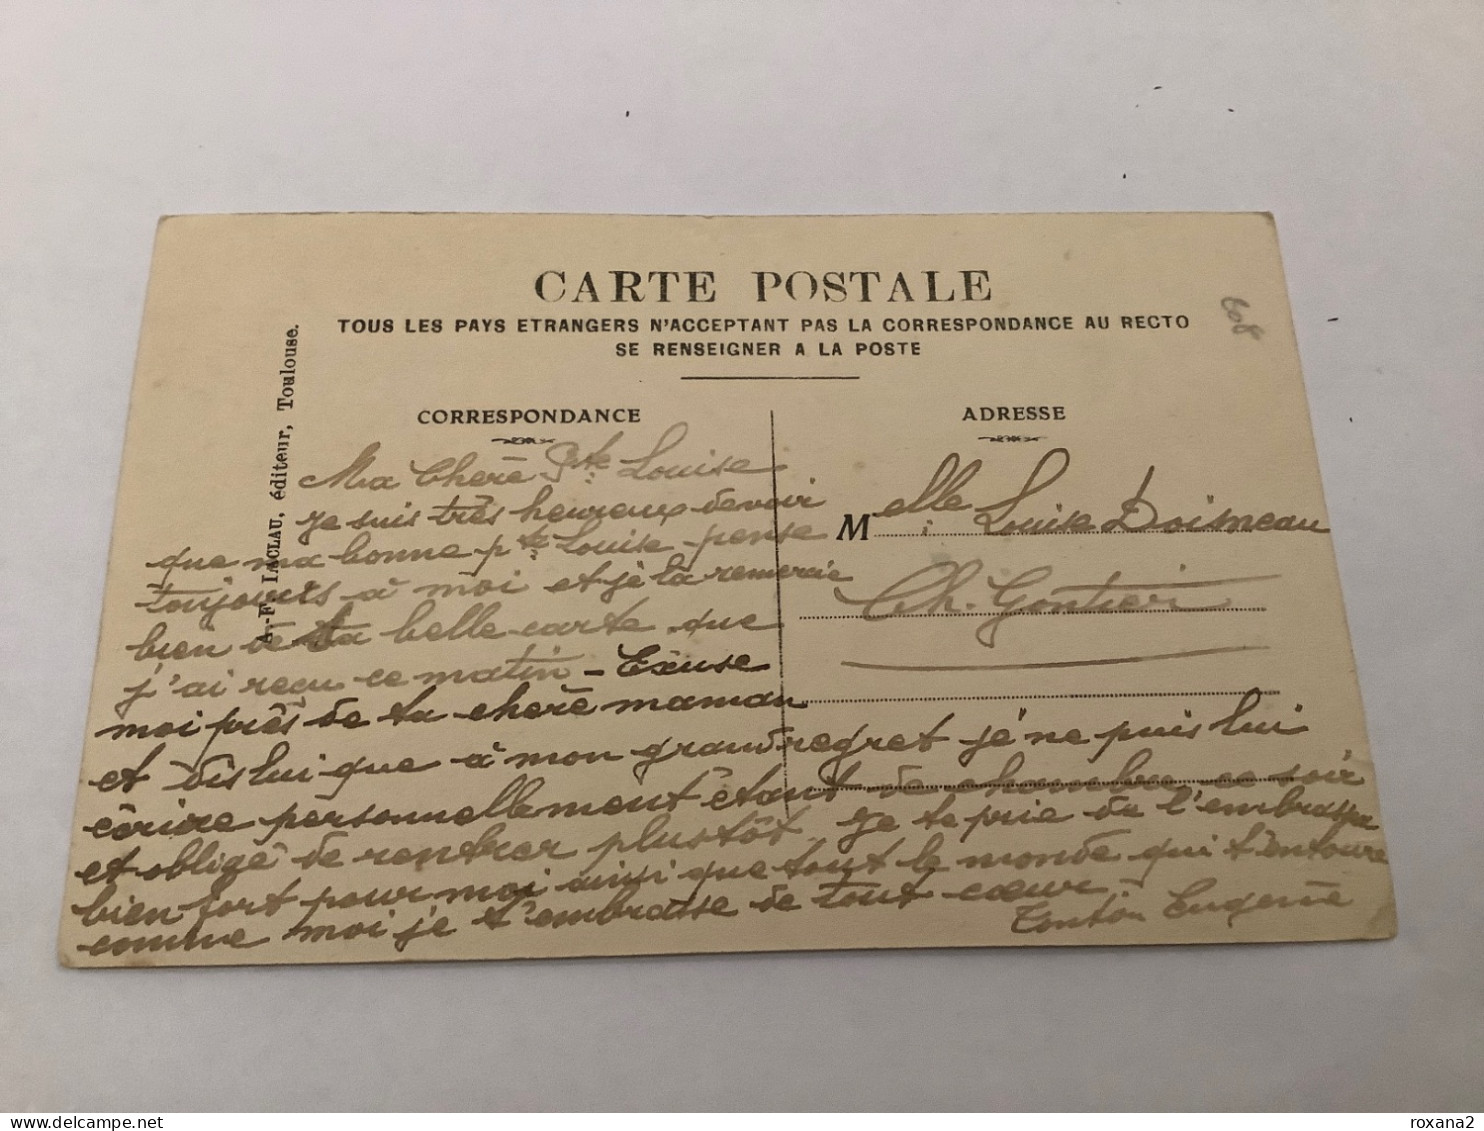 CARTE POSTALE
TOUS LES PAYS ETRANGERS N'ACCEPTANT PAS LA CORRESPONDANCE AU RECTO
SE RENSEIGNER A LA POSTE
608
A.-F. IACLAU, éditeur, Toulouse.
CORRESPONDANCE
Ma Cherè Pte Louise
Je suis très heureux devoir
que ma bonne pte Louise pense
toujours à moi et jè la remercie
bien dè ta belle carte que
j'ai reçu ce matin - Excuse
moi près de ta cherè maman
et dis lui que à mon grand regret jè ne puis lui
écrire personnellement étant de chambre ce soir
et obligé de rentrer plustôt. Je te prie de l'embrasser
bien fort pour moi ainsi que tout le monde qui t'entoure
comme moi je t'embrasse de tout cœur -
Tonton Eugène
ADRESSE
Melle Louise Doisneau
Ch. Gontier
roxana2